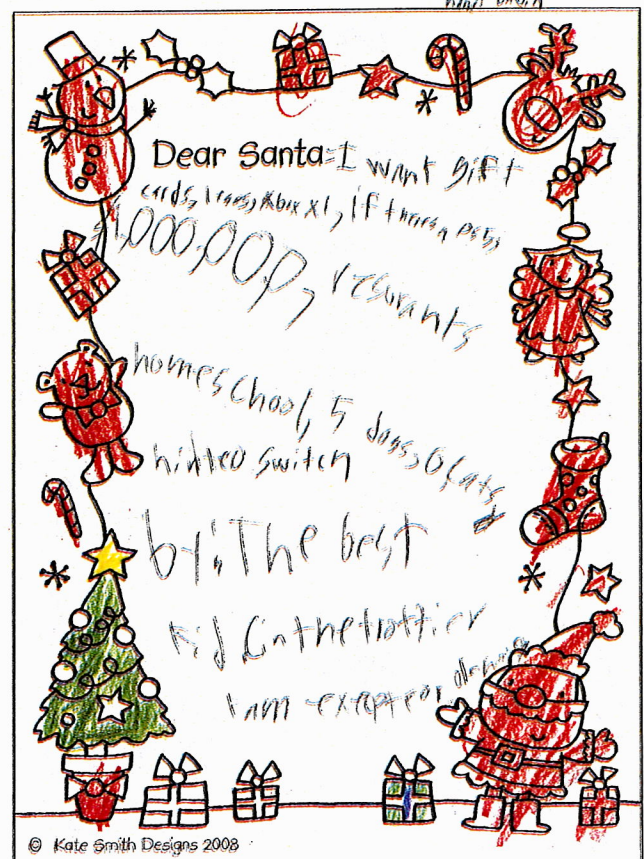 Dear Santa: I want gift
cards, xbox x1, if theres a ps5,
$1,000,000, resurants
homeschool, 5 dogs, 6 cats,
ninteo switch
by: The best
kid in the
I am
© Kate Smith Designs 2008